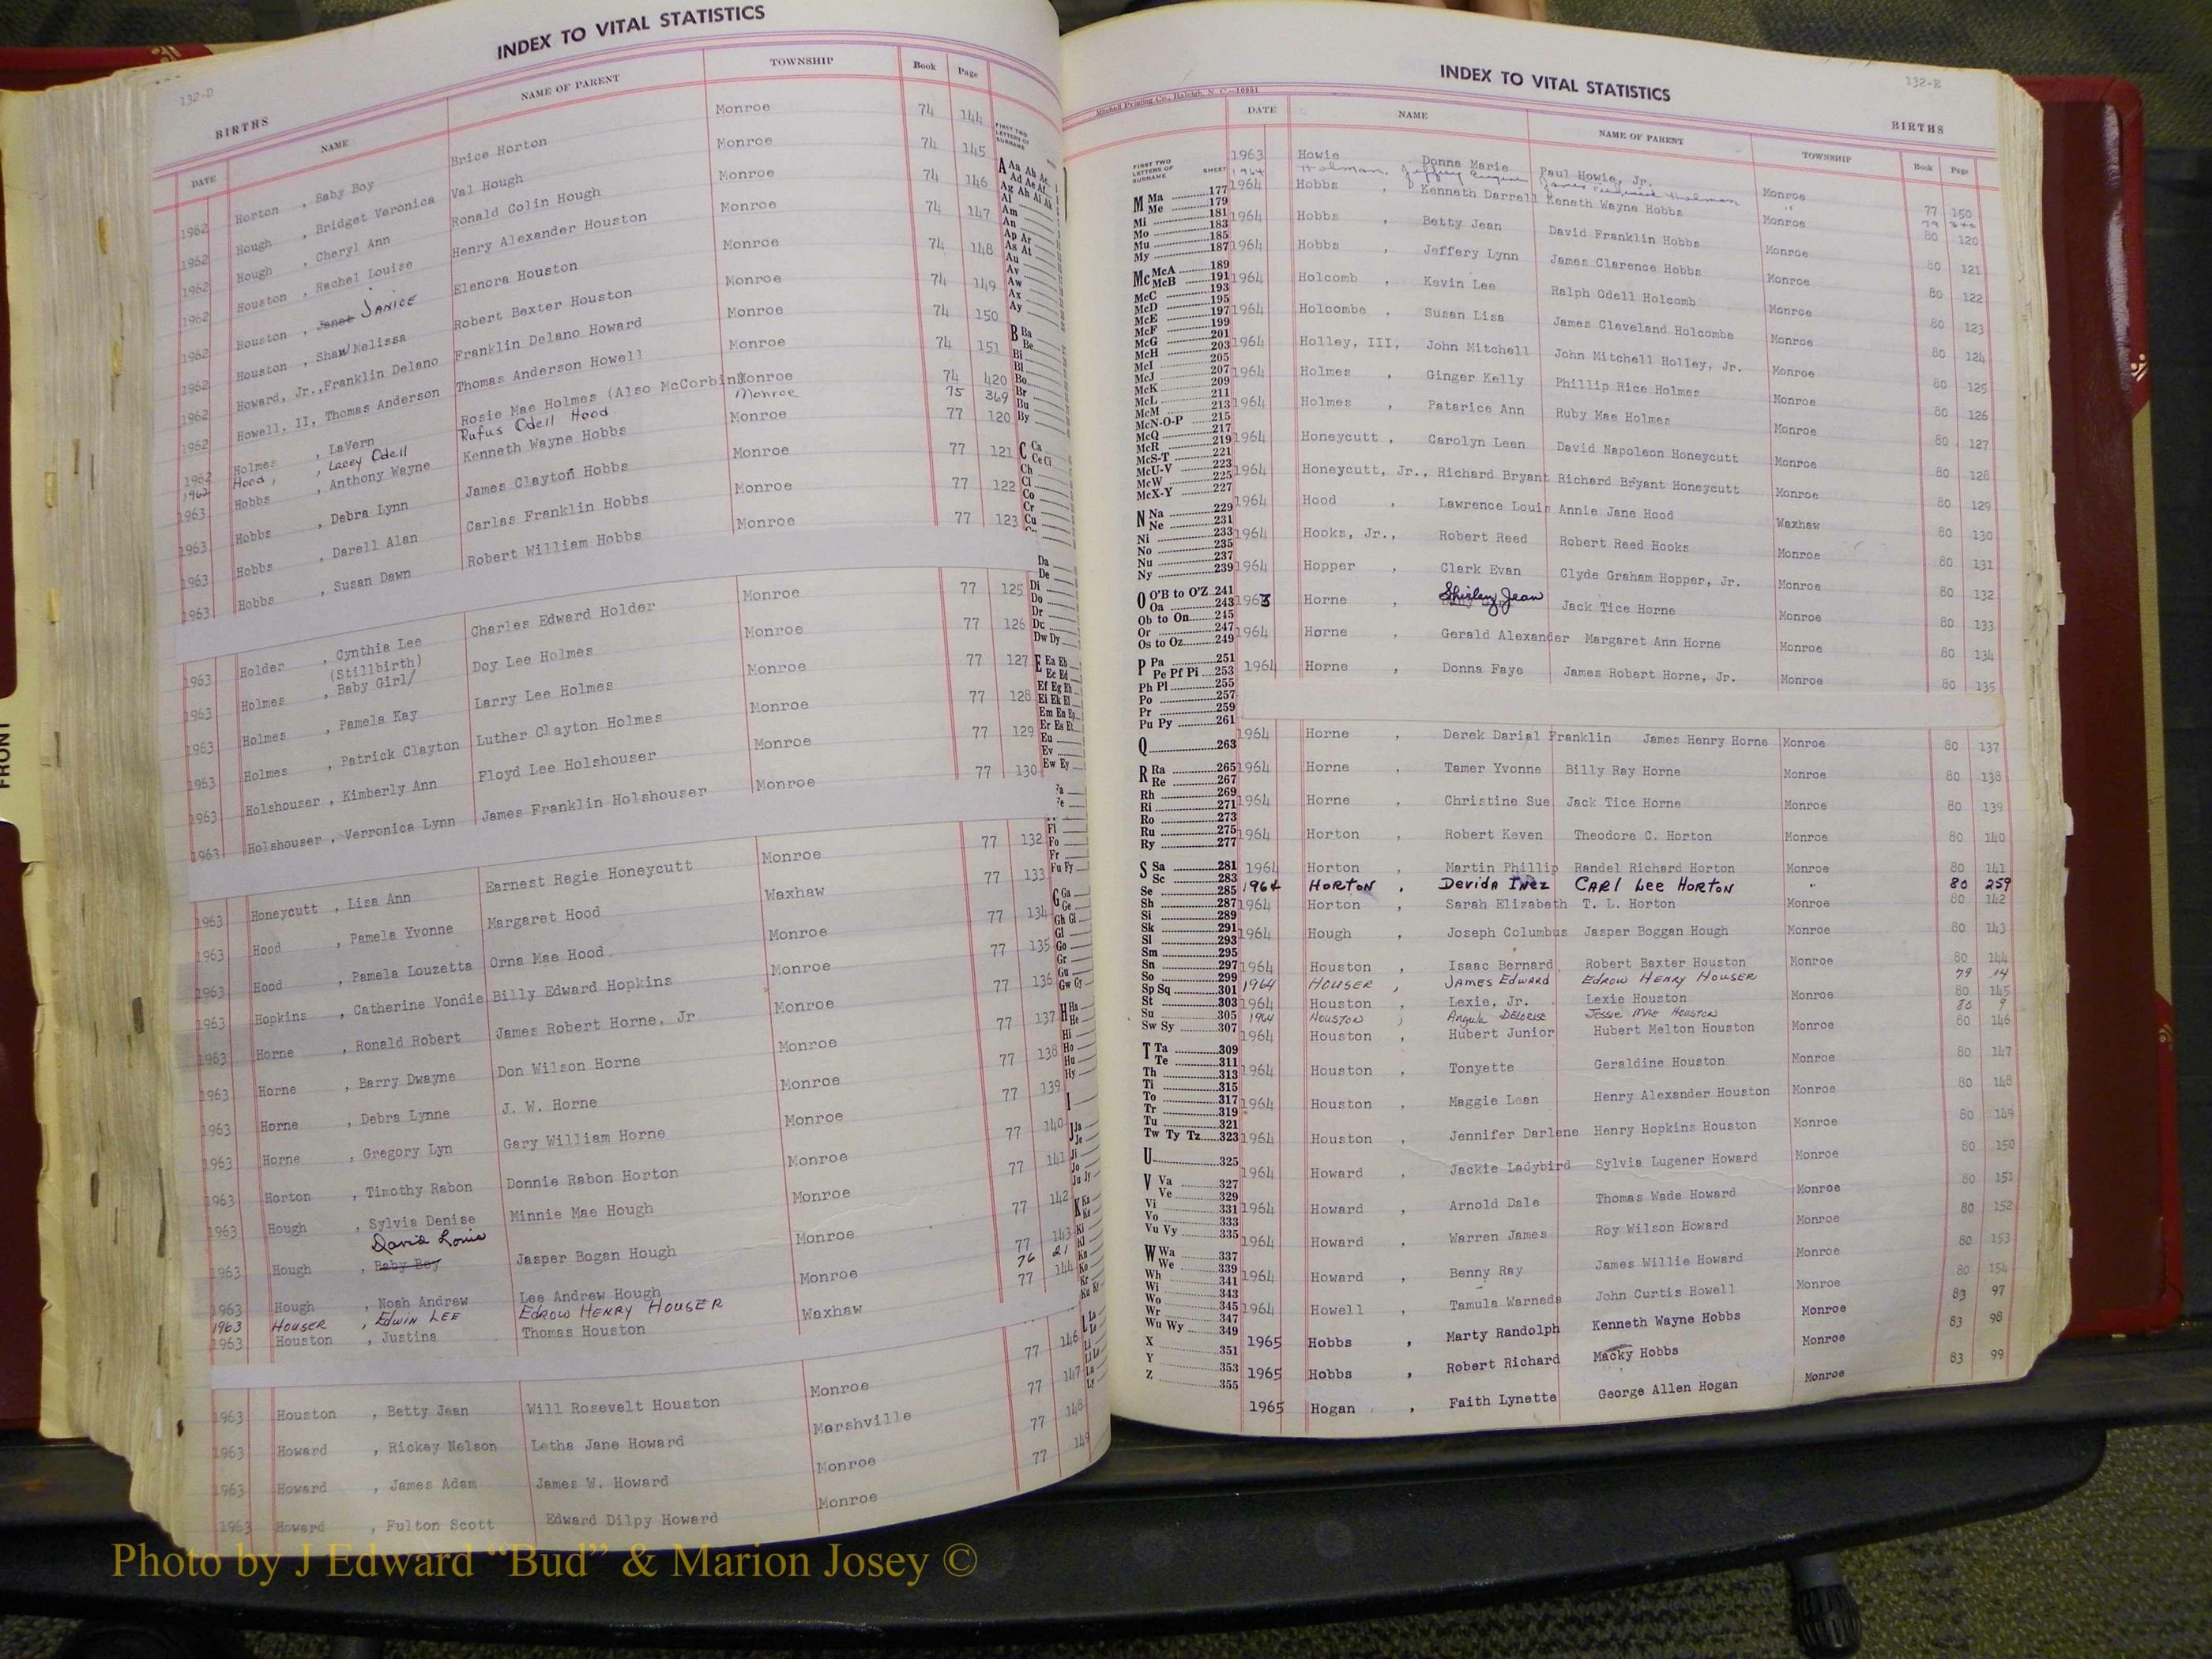 132-D
INDEX TO VITAL STATISTICS
BIRTHS
DATE NAME NAME OF PARENT TOWNSHIP Book Page
1962 Horton , Baby Boy Brice Horton Monroe 74 144
1962 Hough , Bridget Veronica Val Hough Monroe 74 145
1962 Hough , Cheryl Ann Ronald Colin Hough Monroe 74 146
1962 Houston , Rachel Louise Henry Alexander Houston Monroe 74 147
1962 Houston , Janet JANICE Elenora Houston Monroe 74 148
1962 Houston , Shaw Melissa Robert Baxter Houston Monroe 74 149
1962 Howard, Jr.,Franklin Delano Franklin Delano Howard Monroe 74 150
1962 Howell, II, Thomas Anderson Thomas Anderson Howell Monroe 74 151
1962 Holmes , LaVern Rosie Mae Holmes (Also McCorbin) Monroe 74 420
1962 Hood, , Lacey Odell Rufus Odell Hood Monroe 75 369
1963 Hobbs , Anthony Wayne Kenneth Wayne Hobbs Monroe 77 120
1963 Hobbs , Debra Lynn James Clayton Hobbs Monroe 77 121
1963 Hobbs , Darell Alan Carlas Franklin Hobbs Monroe 77 122
1963 Hobbs , Susan Dawn Robert William Hobbs Monroe 77 123
1963 Holder , Cynthia Lee Charles Edward Holder Monroe 77 125
(Stillbirth)
1963 Holmes , Baby Girl/ Doy Lee Holmes Monroe 77 126
1963 Holmes , Pamela Kay Larry Lee Holmes Monroe 77 127
1963 Holmes , Patrick Clayton Luther Clayton Holmes Monroe 77 128
1963 Holshouser , Kimberly Ann Floyd Lee Holshouser Monroe 77 129
1963 Holshouser , Verronica Lynn James Franklin Holshouser Monroe 77 130
1963 Honeycutt , Lisa Ann Earnest Regie Honeycutt Monroe 77 132
1963 Hood , Pamela Yvonne Margaret Hood Waxhaw 77 133
1963 Hood , Pamela Louzetta Orna Mae Hood Monroe 77 134
1963 Hopkins , Catherine Vondie Billy Edward Hopkins Monroe 77 135
1963 Horne , Ronald Robert James Robert Horne, Jr Monroe 77 136
1963 Horne , Barry Dwayne Don Wilson Horne Monroe 77 137
1963 Horne , Debra Lynne J. W. Horne Monroe 77 138
1963 Horne , Gregory Lyn Gary William Horne Monroe 77 139
1963 Horton , Timothy Rabon Donnie Rabon Horton Monroe 77 140
1963 Hough , Sylvia Denise Minnie Mae Hough Monroe 77 141
David Louis
1963 Hough , Baby Boy Jasper Bogan Hough Monroe 77 142
1963 Hough , Noah Andrew Lee Andrew Hough Monroe 77 143
1963 HOUSER , EDWIN LEE EDROW HENRY HOUSER Monroe 76 21
1963 Houston , Justina Thomas Houston Waxhaw 77 144
1963 Houston , Betty Jean Will Rosevelt Houston Monroe 77 146
1963 Howard , Rickey Nelson Letha Jane Howard Marshville 77 147
1963 Howard , James Adam James W. Howard Monroe 77 148
1963 Howard , Fulton Scott Edward Dilpy Howard Monroe 77 149
FIRST TWO
LETTERS OF
SURNAME
A Aa Ab Ac
Ad Ae Af
Ag Ah Ai Ak
Al
Am
An
Ap Ar
As At
Au
Av
Aw
Ax
Ay
B Ba
Be
Bi
Bl
Bo
Br
Bu
By
C Ca
Ce Ci
Ch
Cl
Co
Cr
Cu
Da
De
Di
Do
Dr
Du
Dw Dy
E Ea Eb
Ec Ed
Ef Eg Eh
Ei Ek El
Em En Ep
Er Es Et
Eu
Ev
Ew Ey
Fl
Fo
Fr
Fu Fy
G Ga
Ge
Gh Gi
Gl
Go
Gr
Gu
Gw Gy
H Ha
He
Hi
Ho
Hu
Hy
I
J Ja
Je
Ji
Jo
Ju Jy
K Ka
Ke
Ki
Kl
Kn
Ko
Kr
L La
FRONT
132-E
INDEX TO VITAL STATISTICS
Mitchell Printing Co., Raleigh, N. C.—10951
BIRTHS
DATE NAME NAME OF PARENT TOWNSHIP Book Page
1963 Howie Donna Marie Paul Howie, Jr. Monroe 77 150
1964 Holman, Jeffrey Eugene Holman " 79
1964 Hobbs , Kenneth Darrell Keneth Wayne Hobbs Monroe 80 120
1964 Hobbs , Betty Jean David Franklin Hobbs Monroe 80 121
1964 Hobbs , Jeffery Lynn James Clarence Hobbs Monroe 80 122
1964 Holcomb , Kevin Lee Ralph Odell Holcomb Monroe 80 123
1964 Holcombe , Susan Lisa James Cleveland Holcombe Monroe 80 124
1964 Holley, III, John Mitchell John Mitchell Holley, Jr. Monroe 80 125
1964 Holmes , Ginger Kelly Phillip Rice Holmes Monroe 80 126
1964 Holmes , Patarice Ann Ruby Mae Holmes Monroe 80 127
1964 Honeycutt , Carolyn Leen David Napoleon Honeycutt Monroe 80 128
1964 Honeycutt, Jr., Richard Bryant Richard Bryant Honeycutt Monroe 80 129
1964 Hood , Lawrence Louis Annie Jane Hood Waxhaw 80 130
1964 Hooks, Jr., Robert Reed Robert Reed Hooks Monroe 80 131
1964 Hopper , Clark Evan Clyde Graham Hopper, Jr. Monroe 80 132
1963 Horne , Shirley Jean Jack Tice Horne Monroe 80 133
1964 Horne , Gerald Alexander Margaret Ann Horne Monroe 80 134
1964 Horne , Donna Faye James Robert Horne, Jr. Monroe 80 135
1964 Horne , Derek Darial Franklin James Henry Horne Monroe 80 137
1964 Horne , Tamer Yvonne Billy Ray Horne Monroe 80 138
1964 Horne , Christine Sue Jack Tice Horne Monroe 80 139
1964 Horton , Robert Keven Theodore C. Horton Monroe 80 140
1964 Horton , Martin Phillip Randel Richard Horton Monroe 80 141
1964 HORTON , Devida Inez CARl Lee HORTON " 80 259
1964 Horton , Sarah Elizabeth T. L. Horton Monroe 80 142
1964 Hough , Joseph Columbus Jasper Boggan Hough Monroe 80 143
1964 Houston , Isaac Bernard Robert Baxter Houston Monroe 80 144
1964 HOUSER , JAMES EDWARD EDROW HENRY HOUSER 79 14
1964 Houston , Lexie, Jr. Lexie Houston Monroe 80 145
1964 HOUSTON , Angula DELORISE JESSIE MAE HOUSTON 80 9
1964 Houston , Hubert Junior Hubert Melton Houston Monroe 80 146
1964 Houston , Tonyette Geraldine Houston Monroe 80 147
1964 Houston , Maggie Lean Henry Alexander Houston Monroe 80 148
1964 Houston , Jennifer Darlene Henry Hopkins Houston Monroe 80 149
1964 Howard , Jackie Ladybird Sylvia Lugener Howard Monroe 80 150
1964 Howard , Arnold Dale Thomas Wade Howard Monroe 80 151
1964 Howard , Warren James Roy Wilson Howard Monroe 80 152
1964 Howard , Benny Ray James Willie Howard Monroe 80 153
1964 Howell , Tamula Warneda John Curtis Howell Monroe 80 154
1965 Hobbs , Marty Randolph Kenneth Wayne Hobbs Monroe 83 97
1965 Hobbs , Robert Richard Macky Hobbs Monroe 83 98
1965 Hogan , Faith Lynette George Allen Hogan Monroe 83 99
FIRST TWO
LETTERS OF
SURNAME SHEET
M Ma 177
Me 179
Mi 181
Mo 183
Mu 185
My 187
Mc McA 189
McB 191
McC 193
McD 195
McE 197
McF 199
McG 201
McH 203
McI 205
McJ 207
McK 209
McL 211
McM 213
McN-O-P 215
McQ 217
McR 219
McS-T 221
McU-V 223
McW 225
McX-Y 227
N Na 229
Ne 231
Ni 233
No 235
Nu 237
Ny 239
O O'B to O'Z 241
Oa 243
Ob to On 245
Or 247
Os to Oz 249
P Pa 251
Pe Pf Pi 253
Ph Pl 255
Po 257
Pr 259
Pu Py 261
Q 263
R Ra 265
Re 267
Rh 269
Ri 271
Ro 273
Ru 275
Ry 277
S Sa 281
Sc 283
Se 285
Sh 287
Si 289
Sk 291
Sl 293
Sm 295
Sn 297
So 299
Sp Sq 301
St 303
Su 305
Sw Sy 307
T Ta 309
Te 311
Th 313
Ti 315
To 317
Tr 319
Tu 321
Tw Ty Tz 323
U 325
V Va 327
Ve 329
Vi 331
Vo 333
Vu Vy 335
W Wa 337
We 339
Wh 341
Wi 343
Wo 345
Wr 347
Wu Wy 349
X 351
Y 353
Z 355
Photo by J Edward “Bud” & Marion Josey ©